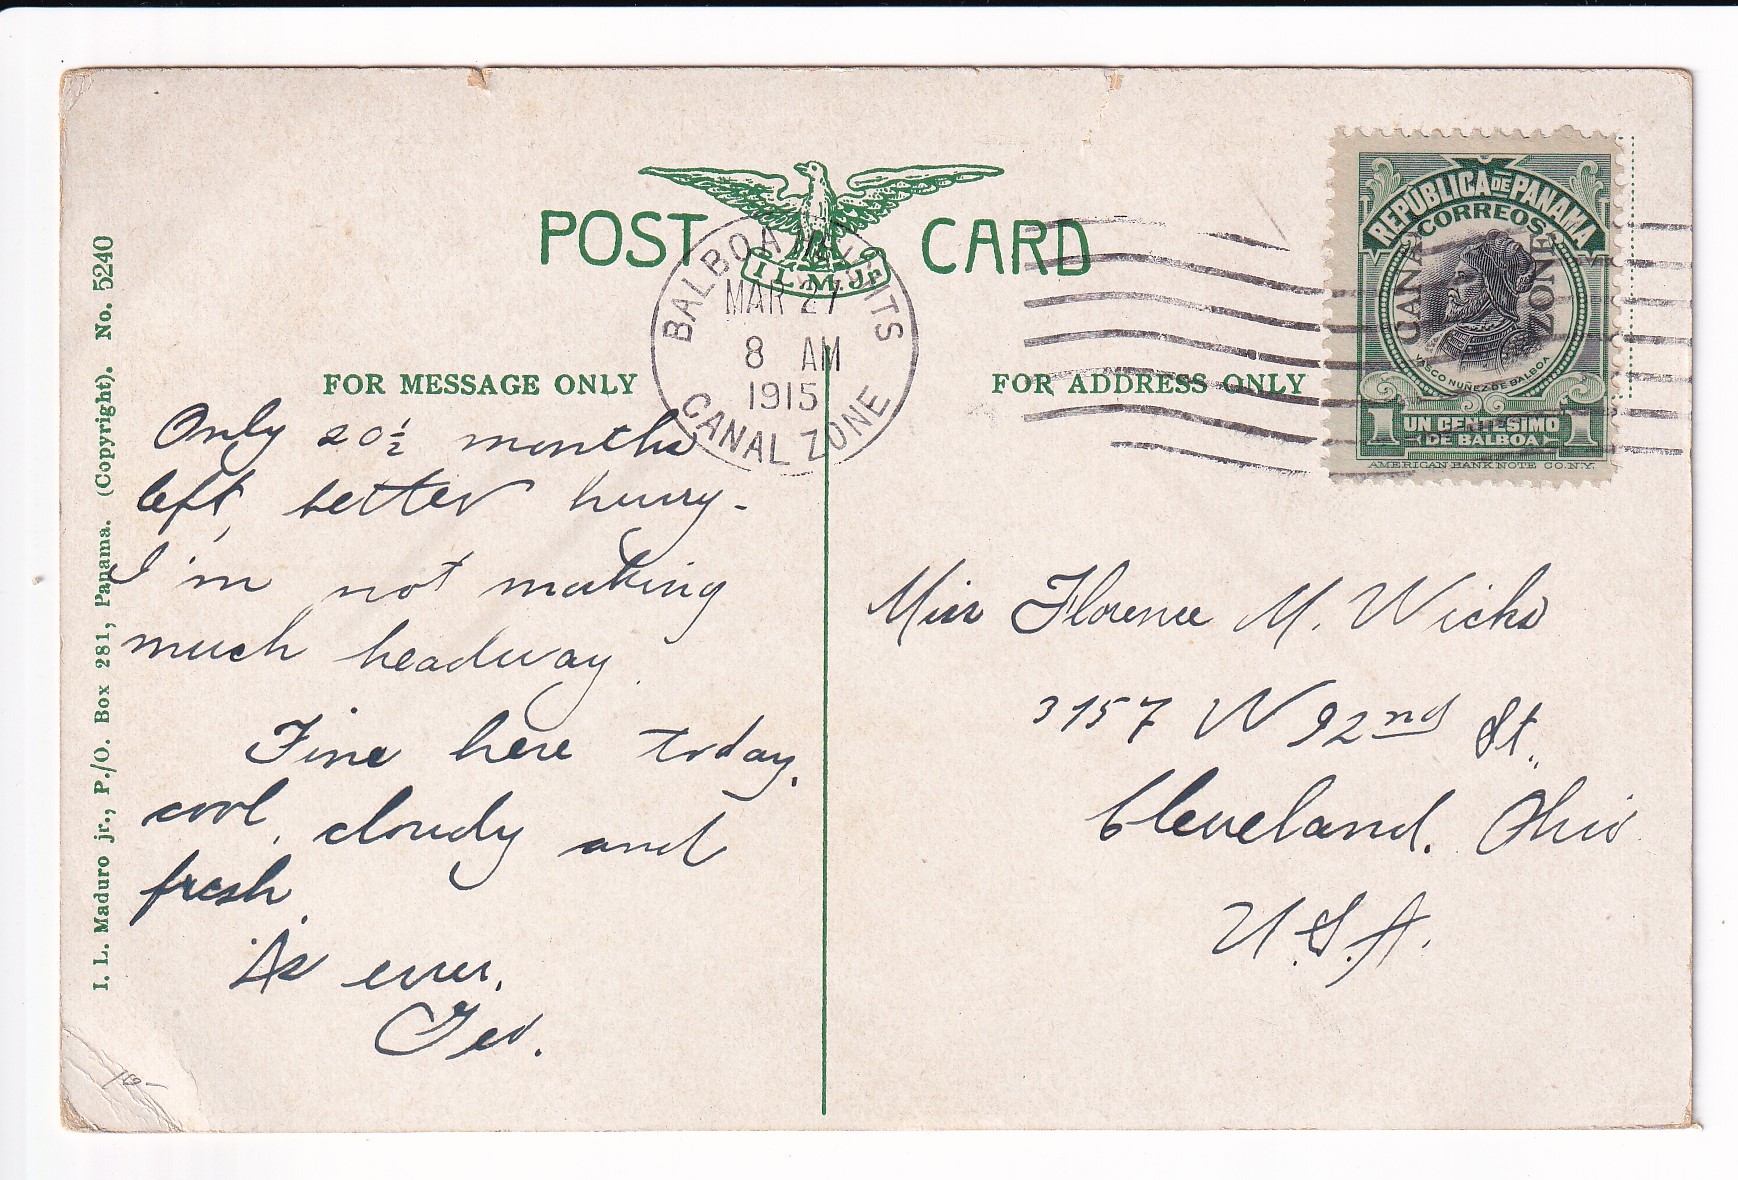 POST CARD
I. L. M. Jr.
BALBOA HEIGHTS
MAR 27
8 AM
1915
CANAL ZONE
REPÚBLICA DE PANAMA
CORREOS
CANAL ZONE
VASCO NUÑEZ DE BALBOA
1 UN CENTESIMO 1
DE BALBOA
AMERICAN BANK NOTE CO. N.Y.
I. L. Maduro jr., P./O. Box 281, Panama. (Copyright). No. 5240
FOR MESSAGE ONLY
Only 20½ months
left, better hurry-
I'm not making
much headway.
Fine here today,
cool, cloudy and
fresh.
As ever,
Geo.
10-
FOR ADDRESS ONLY
Miss Florence M. Wicks
3157 W 92nd St.,
Cleveland. Ohio
U.S.A.